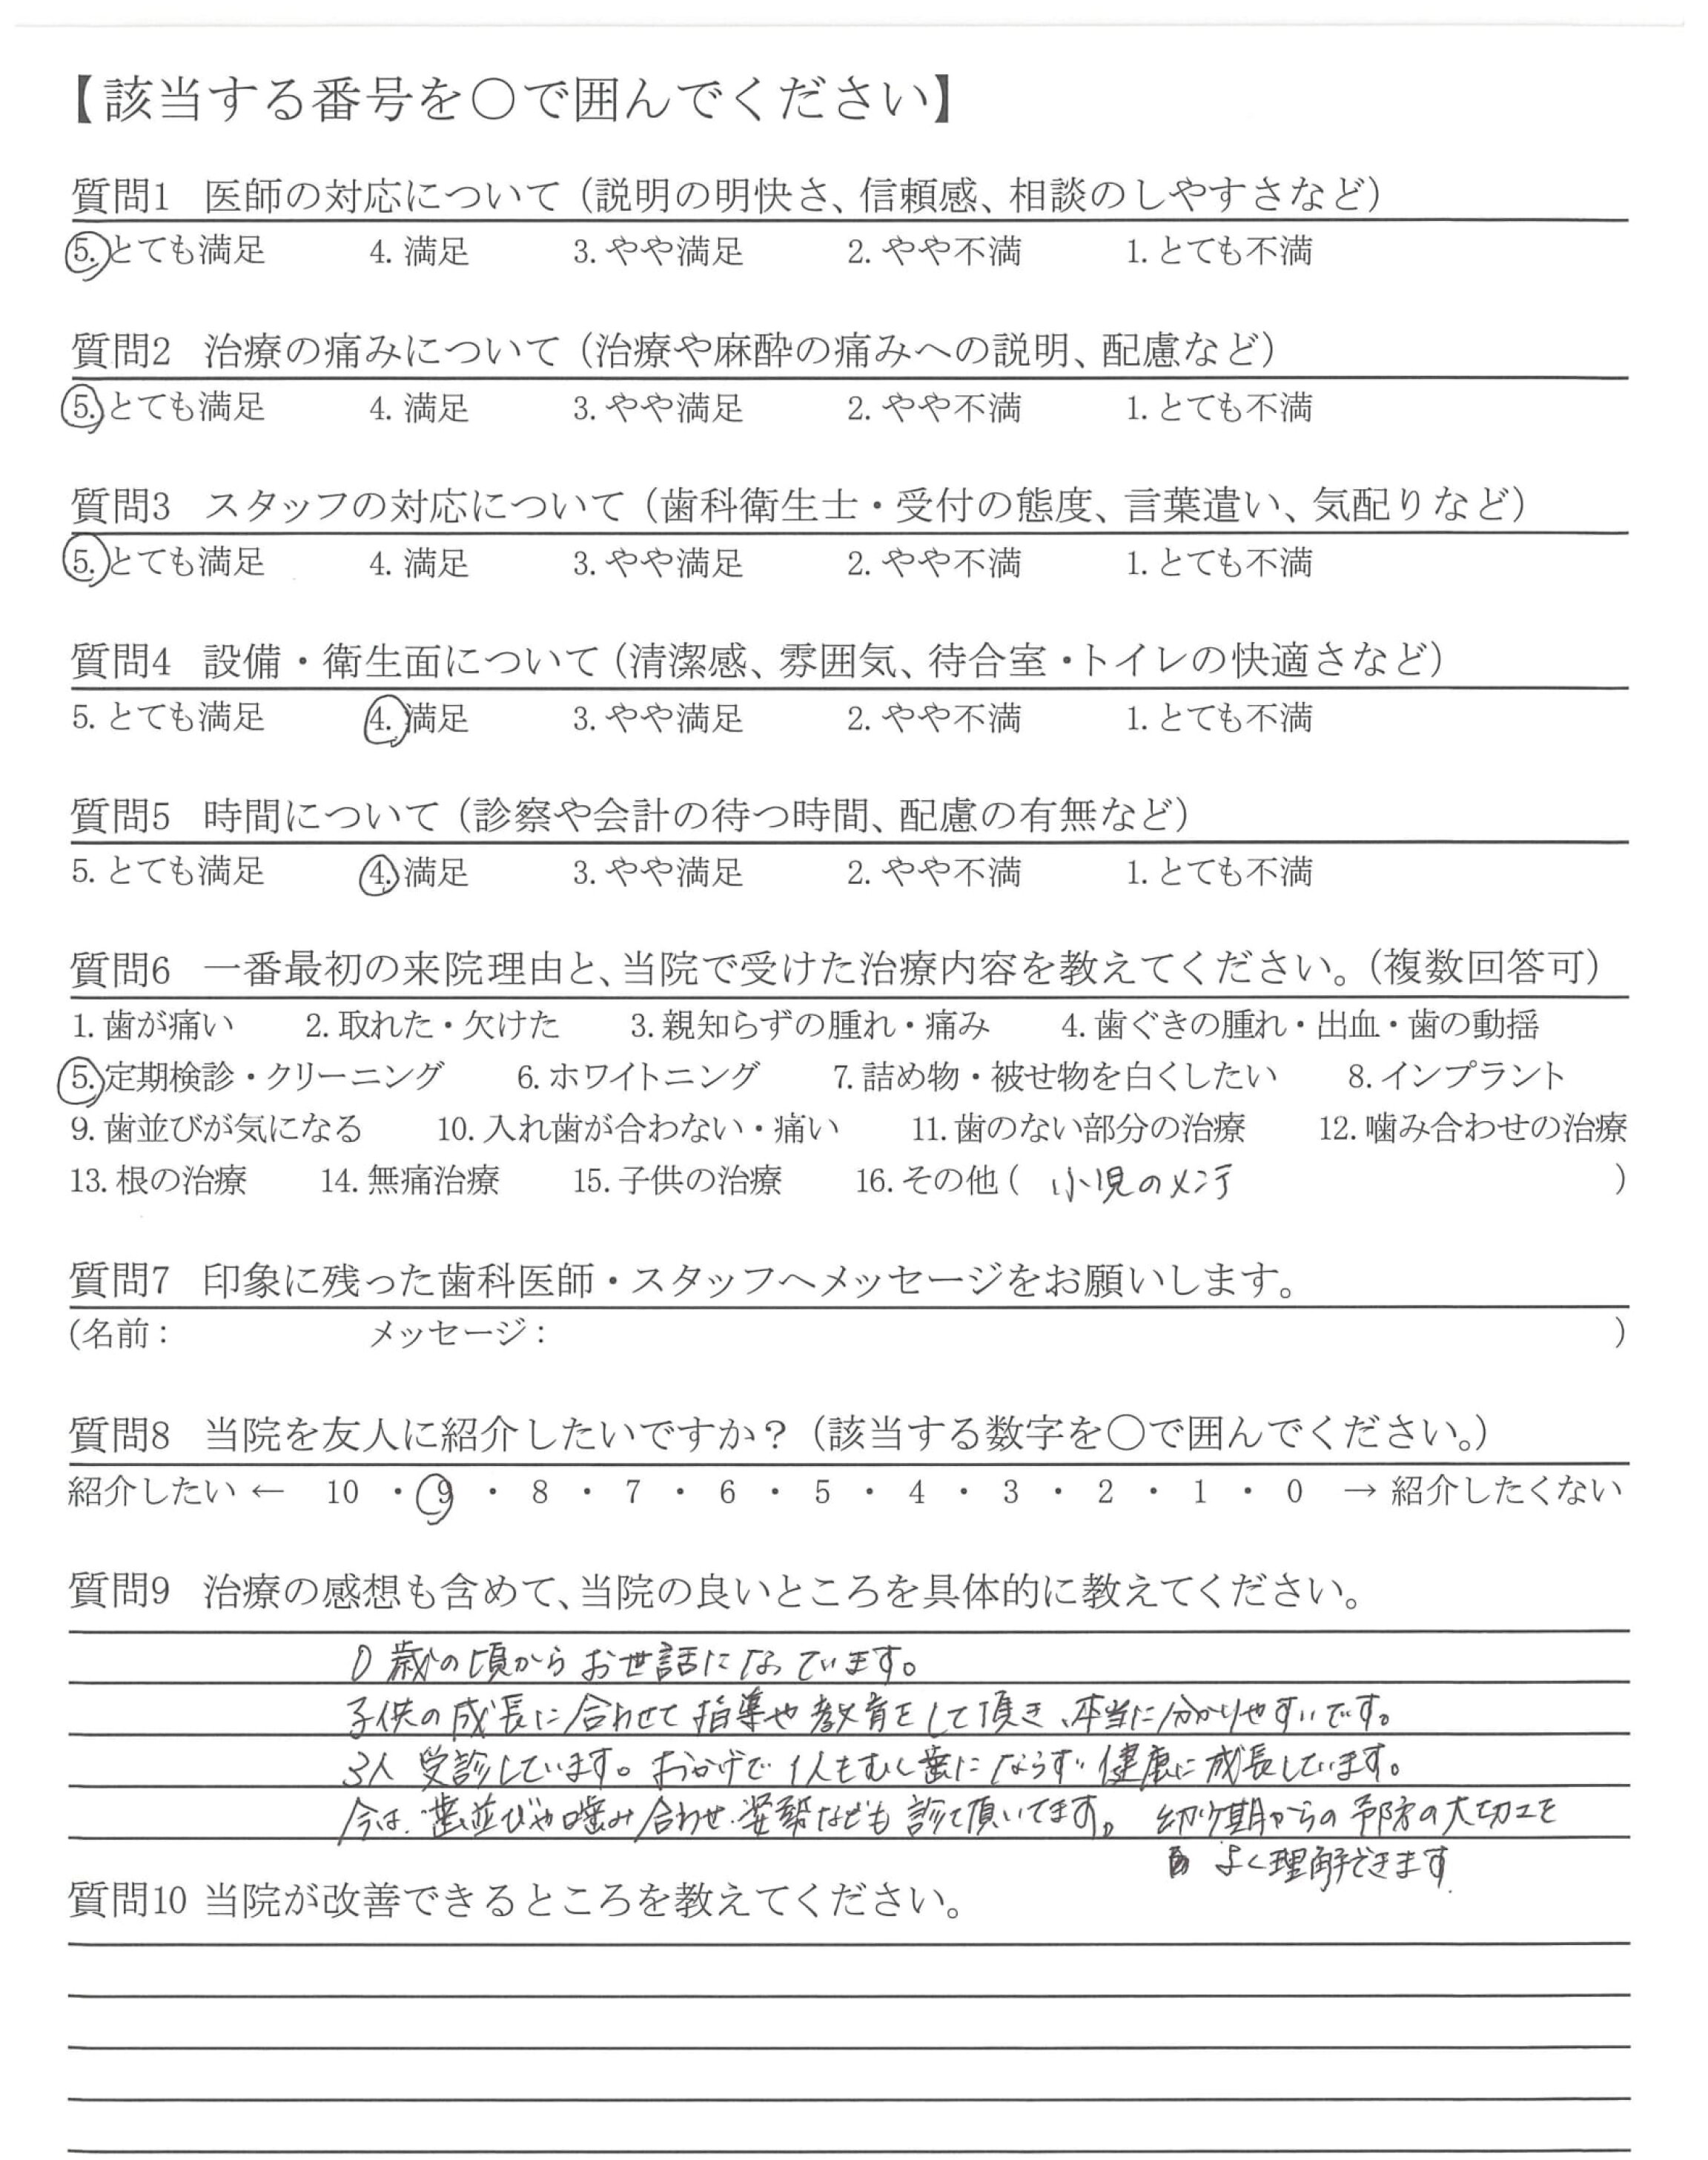 【該当する番号を○で囲んでください】
質問1 医師の対応について（説明の明快さ、信頼感、相談のしやすさなど）
5.とても満足 4.満足 3.やや満足 2.やや不満 1.とても不満
質問2 治療の痛みについて（治療や麻酔の痛みへの説明、配慮など）
5.とても満足 4.満足 3.やや満足 2.やや不満 1.とても不満
質問3 スタッフの対応について（歯科衛生士・受付の態度、言葉遣い、気配りなど）
5.とても満足 4.満足 3.やや満足 2.やや不満 1.とても不満
質問4 設備・衛生面について（清潔感、雰囲気、待合室・トイレの快適さなど）
5.とても満足 4.満足 3.やや満足 2.やや不満 1.とても不満
質問5 時間について（診察や会計の待つ時間、配慮の有無など）
5.とても満足 4.満足 3.やや満足 2.やや不満 1.とても不満
質問6 一番最初の来院理由と、当院で受けた治療内容を教えてください。（複数回答可）
1.歯が痛い 2.取れた・欠けた 3.親知らずの腫れ・痛み 4.歯ぐきの腫れ・出血・歯の動揺
5.定期検診・クリーニング 6.ホワイトニング 7.詰め物・被せ物を白くしたい 8.インプラント
9.歯並びが気になる 10.入れ歯が合わない・痛い 11.歯のない部分の治療 12.噛み合わせの治療
13.根の治療 14.無痛治療 15.子供の治療 16.その他（ 小児の ）
質問7 印象に残った歯科医師・スタッフへメッセージをお願いします。
（名前： メッセージ： ）
質問8 当院を友人に紹介したいですか？（該当する数字を○で囲んでください。）
紹介したい ← 10 ・ 9 ・ 8 ・ 7 ・ 6 ・ 5 ・ 4 ・ 3 ・ 2 ・ 1 ・ 0 → 紹介したくない
質問9 治療の感想も含めて、当院の良いところを具体的に教えてください。
0歳の頃からお世話になっています。
子供の成長に合わせて指導や教育をして頂き、本当に分かりやすいです。
3人受診しています。おかげで1人もむし歯にならず健康に成長しています。
今は、歯並びや噛み合わせ、姿勢なども診て頂いてます。幼少期からの予防の大切さを
よく理解できます
質問10 当院が改善できるところを教えてください。